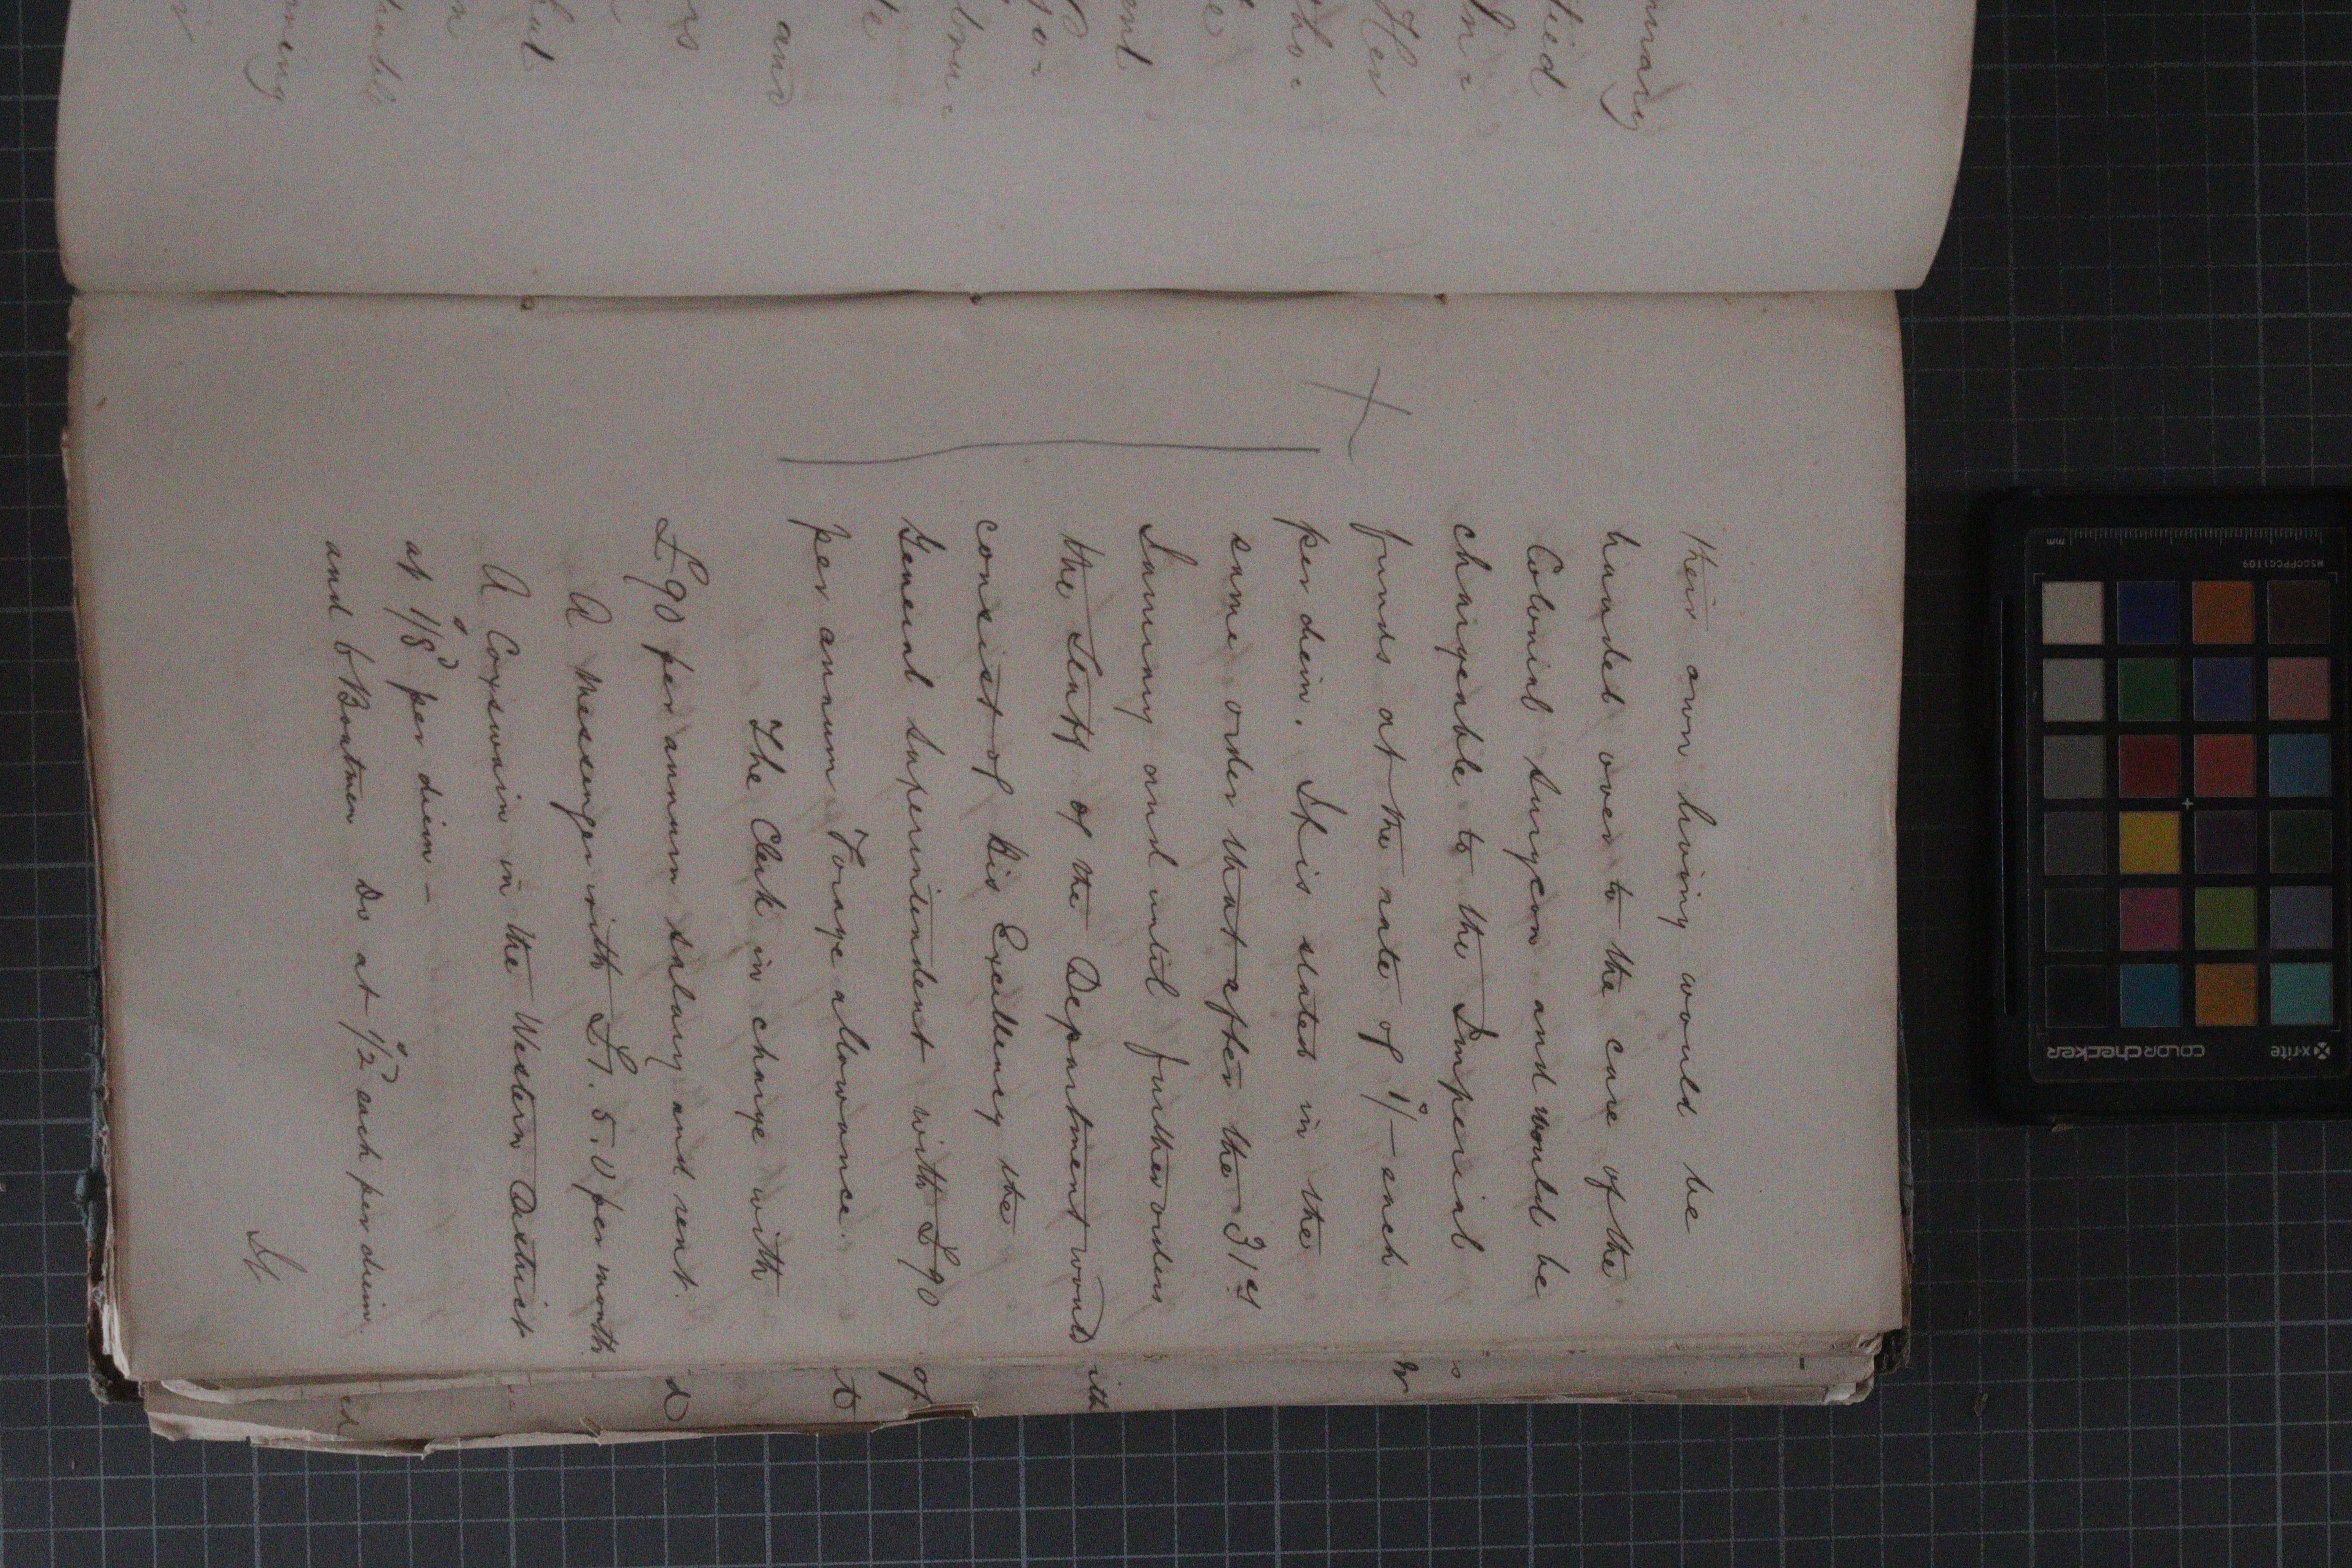 their own living would be
handed over to the care of the
Colonial Surgeon and would be
chargeable to the Imperial
funds at the rate of 1/- each
per diem. It is stated in the
same order that after the 31st
January and until further orders
the Staff of the Department would
consist of His Excellency the
General Superintendent with £90
per annum Forage allowance.
The Clerk in charge with
£90 per annum salary and rent.
A Messenger with £1.5.0 per month
A Coxswain in the Western District
at 1/8 per diem –
and 6 Boatmen Do at 1/2 each per diem.
It